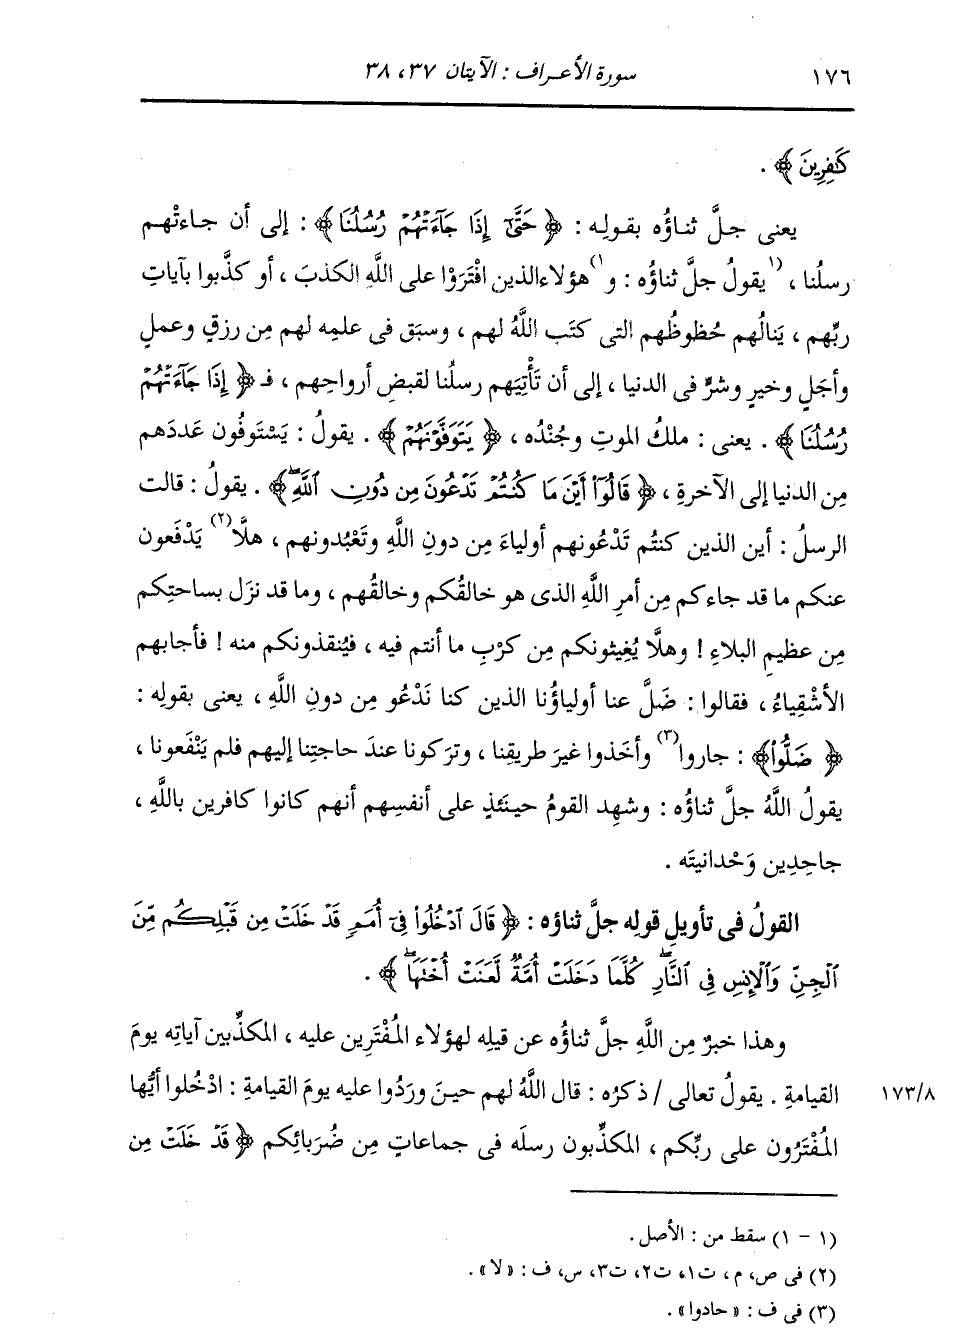 ١٧٦ سورة الأعراف : الآيتان ٣٧، ٣٨
كَٰفِرِينَ ﴾ .
يعنى جلَّ ثناؤُه بقولِه : ﴿ حَتَّىٰٓ إِذَا جَآءَتۡهُمۡ رُسُلُنَا ﴾ : إلى أن جاءتْهم
رسلُنا ، (١يقولُ جلَّ ثناؤُه : و١) هؤلاءالذين افْتَرَوْا على اللَّهِ الكذبَ ، أو كذَّبوا بآياتِ
ربِّهم ، يَنالُهم حُظوظُهم التى كتَب اللَّهُ لهم ، وسبَق فى علمِه لهم مِن رزقٍ وعملٍ
وأجَلٍ وخيرٍ وشرٍّ فى الدنيا ، إلى أن تَأْتِيَهم رسلُنا لقبضِ أرواحِهم ، فـ ﴿ إِذَا جَآءَتۡهُمۡ
رُسُلُنَا ﴾ . يعنى : ملكُ الموتِ وجُنْدُه ، ﴿ يَتَوَفَّوۡنَهُمۡ ﴾ . يقولُ : يَسْتَوفُون عَددَهم
مِن الدنيا إلى الآخرةِ ، ﴿ قَالُوٓاْ أَيۡنَ مَا كُنتُمۡ تَدۡعُونَ مِن دُونِ ٱللَّهِۖ ﴾ . يقولُ : قالت
الرسلُ : أين الذين كنتُم تَدْعُونهم أولياءَ مِن دونِ اللَّهِ وتَعْبُدونهم ، هلَّا(٢) يَدْفَعون
عنكم ما قد جاءكم مِن أمرِ اللَّهِ الذى هو خالقُكم وخالقُهم ، وما قد نزَل بساحتِكم
مِن عظيمِ البلاءِ ! وهلَّا يُغِيثونكم مِن كرْبِ ما أنتم فيه ، فيُنقذونكم منه ! فأجابهم
الأشْقِياءُ ، فقالوا : ضَلَّ عنا أولياؤُنا الذين كنا نَدْعُو مِن دونِ اللَّهِ ، يعنى بقولِه :
﴿ ضَلُّواْ﴾ : جاروا(٣) وأخَذوا غيرَ طريقِنا ، وترَكونا عندَ حاجتِنا إليهم فلم يَنْفَعونا ،
يقولُ اللَّهُ جلَّ ثناؤُه : وشهِد القومُ حينَئذٍ على أنفسِهم أنهم كانوا كافرين باللَّهِ ،
جاحِدِين وَحْدانيتَه .
القولُ فى تأويلِ قولِه جلَّ ثناؤه : ﴿ قَالَ ٱدۡخُلُواْ فِيٓ أُمَمٖ قَدۡ خَلَتۡ مِن قَبۡلِكُم مِّنَ
ٱلۡجِنِّ وَٱلۡإِنسِ فِي ٱلنَّارِۖ كُلَّمَا دَخَلَتۡ أُمَّةٞ لَّعَنَتۡ أُخۡتَهَاۖ ﴾ .
وهذا خبرٌ مِن اللَّهِ جلَّ ثناؤُه عن قيلِه لهؤلاء المُفْتَرِين عليه ، المكذِّبين آياتِه يومَ
القيامةِ . يقولُ تعالى / ذكرُه : قال اللَّهُ لهم حينَ ورَدُوا عليه يومَ القيامةِ : ادْخُلوا أيُّها ١٧٣/٨
المُفْتَرُون على ربِّكم ، المكذِّبون رسلَه فى جماعاتٍ مِن ضُرَبائِكم ﴿ قَدۡ خَلَتۡ مِن
(١ - ١) سقط من : الأصل .
(٢) فى ص، م ، ت١، ت٢، ت٣، س، ف : «لا» .
(٣) فى ف : «حادوا» .